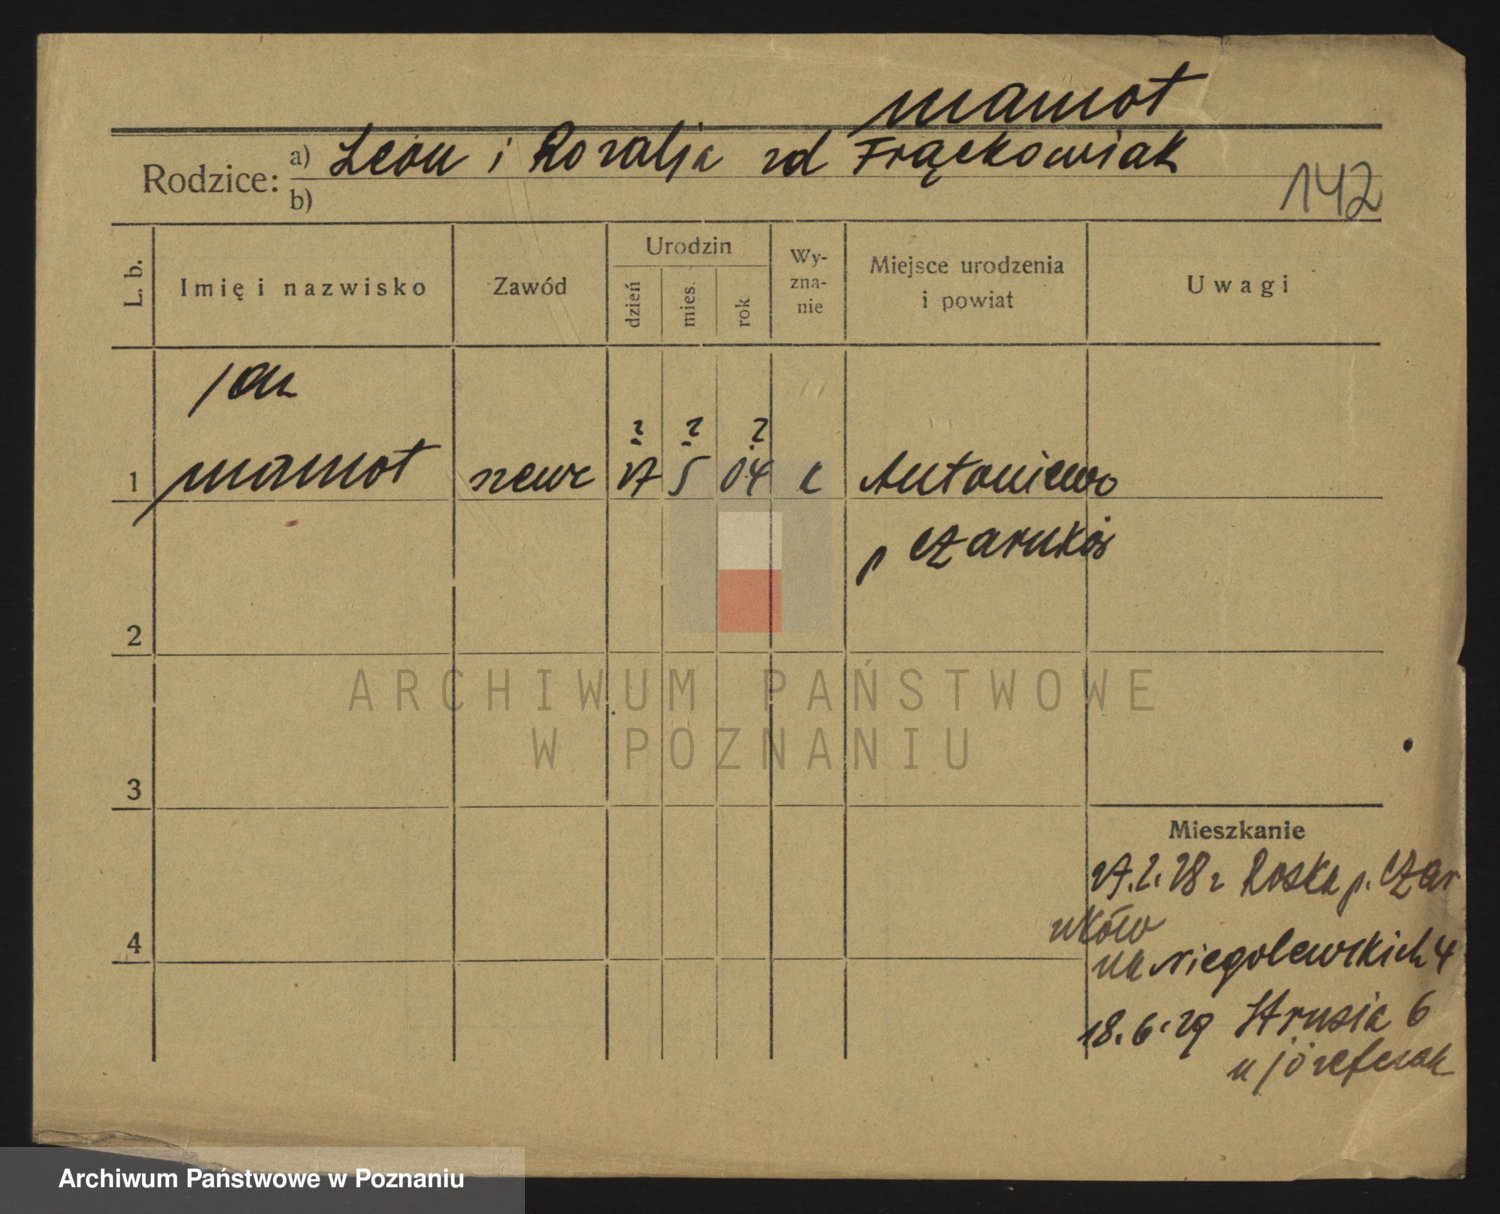 Mamot
Rodzice: a) Leon i Rozalja zd Frąckowiak
b)
142
L. b.
Imię i nazwisko
Zawód
Urodzin
dzień
mies.
rok
Wy-
zna-
nie
Miejsce urodzenia
i powiat
Uwagi
Jan
? ? ?
1 Mamot szewc 27 5 04 k Antoniewo
p Czarnków
2
ARCHIWUM PAŃSTWOWE
W POZNANIU
3
Mieszkanie
27.2.28 r Roska p. Czar
nków
na Niegolewskich 4
4
18.6.29 Strusia 6
u Józefczak
Archiwum Państwowe w Poznaniu